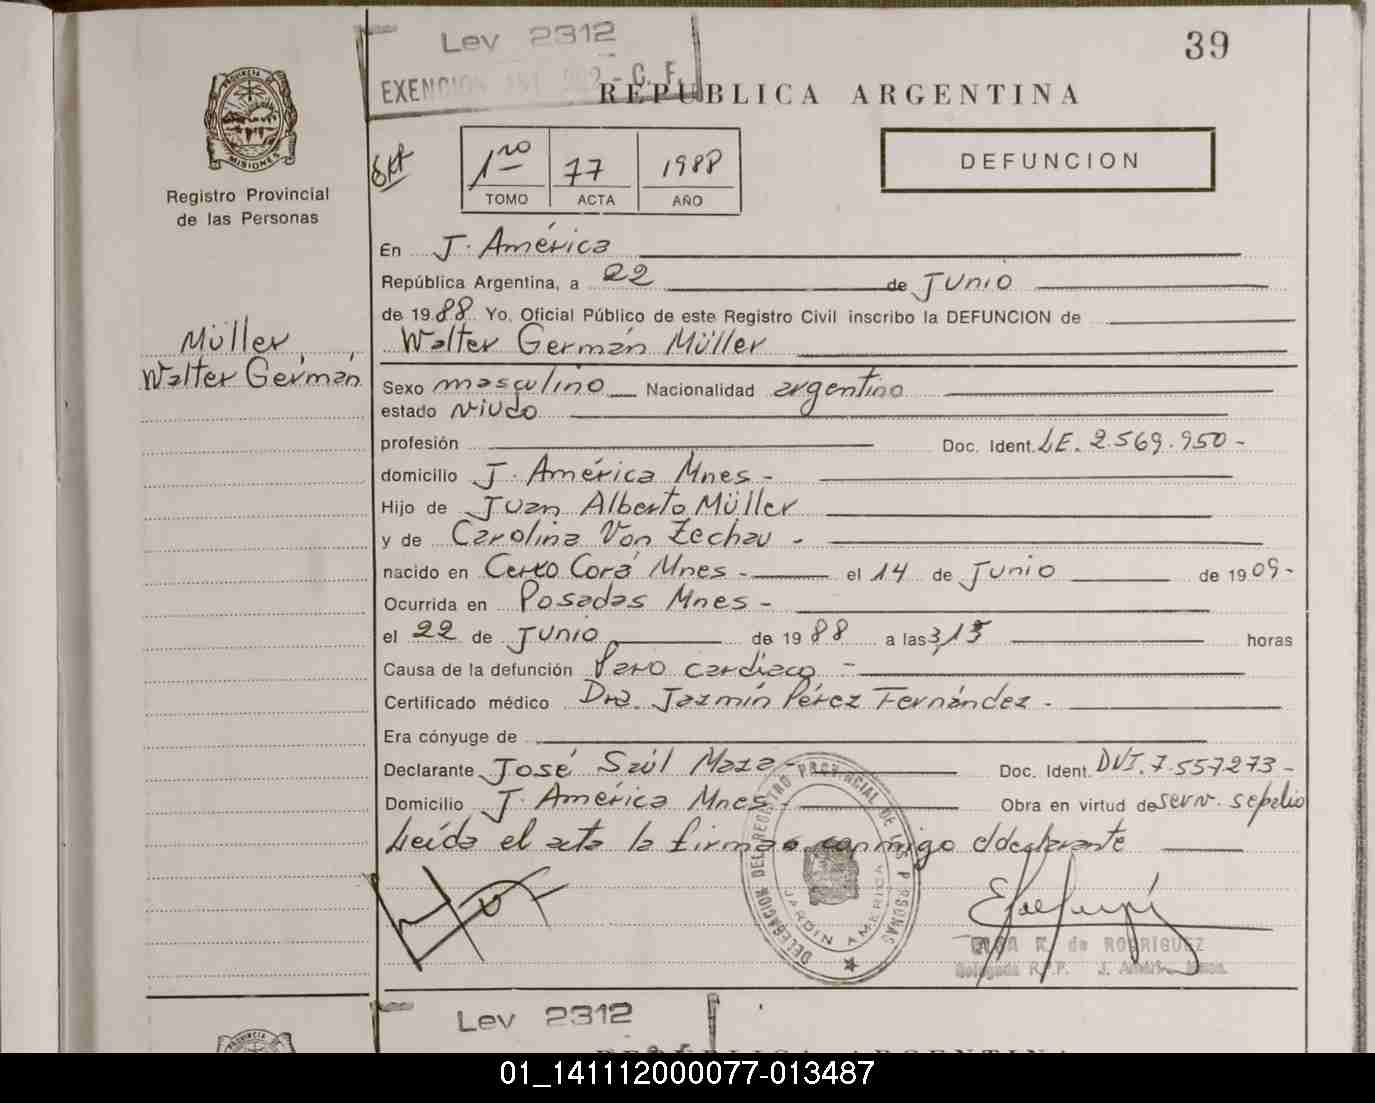 39
Ley 2312
EXENCION
REPUBLICA ARGENTINA
PROVINCIA DE
MISIONES
Registro Provincial
de las Personas
1ro 77 1988
TOMO ACTA AÑO
DEFUNCION
En J. América
República Argentina, a 22 de Junio
de 1988 Yo, Oficial Público de este Registro Civil inscribo la DEFUNCION de
Walter Germán Müller
Müller,
Walter Germán
Sexo masculino Nacionalidad argentino
estado viudo
profesión Doc. Ident. LE. 2.569.950-
domicilio J. América Mnes-
Hijo de Juan Alberto Müller
y de Carolina Von Zechau -
nacido en Cerro Corá Mnes- el 14 de Junio de 1909-
Ocurrida en Posadas Mnes-
el 22 de Junio de 1988 a las 3,15 horas
Causa de la defunción Paro cardíaco -
Certificado médico Dra. Jazmín Pérez Fernández -
Era cónyuge de
Declarante José Saúl Maza- Doc. Ident. DNI. 7.557.273-
Domicilio J. América Mnes- Obra en virtud de serv. sepelio
Leída el acta la firma conmigo el declarante
DELEGACION DEL REGISTRO PROVINCIAL DE LAS PERSONAS
JARDIN AMERICA
de RODRIGUEZ
Delegada R.P.P. J. América
Ley 2312
01_141112000077-013487